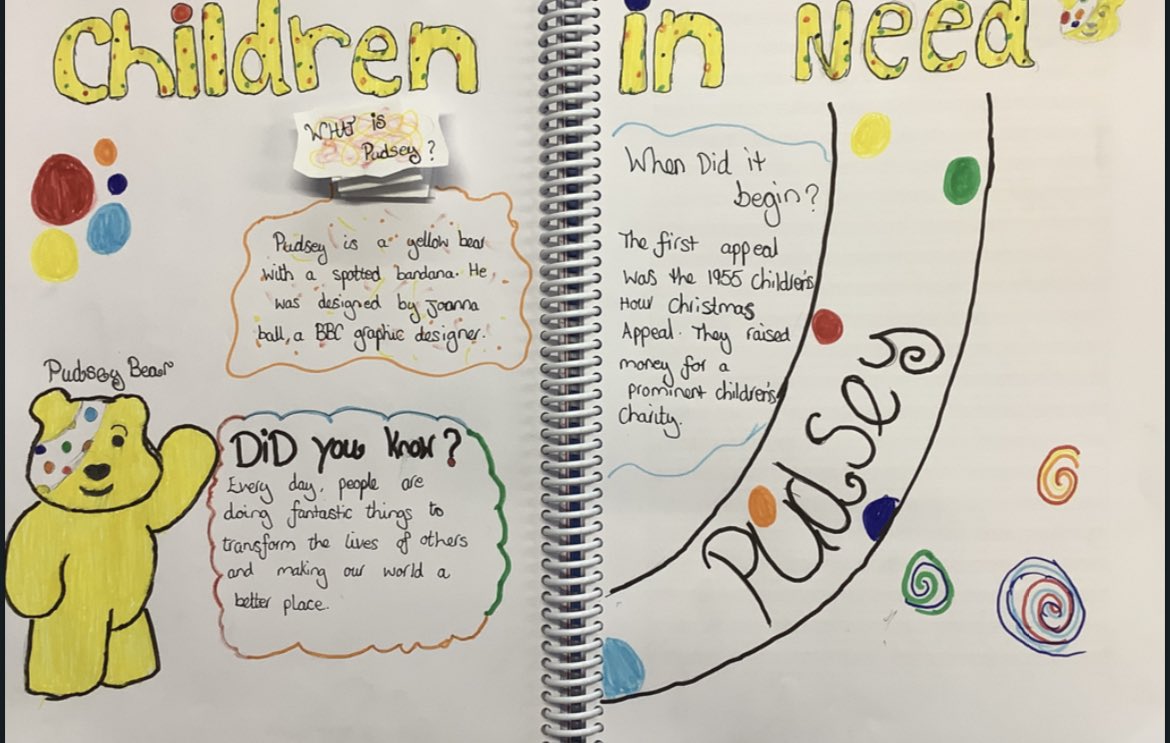 Children in Need
WHAT is
Pudsey?
Pudsey is a yellow bear
with a spotted bandana. He
was designed by Joanna
ball, a BBC graphic designer.
Pudsey Bear
DiD you know?
Every day, people are
doing fantastic things to
transform the lives of others
and making our world a
better place.
When Did it
begin?
The first appeal
was the 1955 children's
Hour Christmas
Appeal. They raised
money for a
prominent children's
charity.
Pudsey